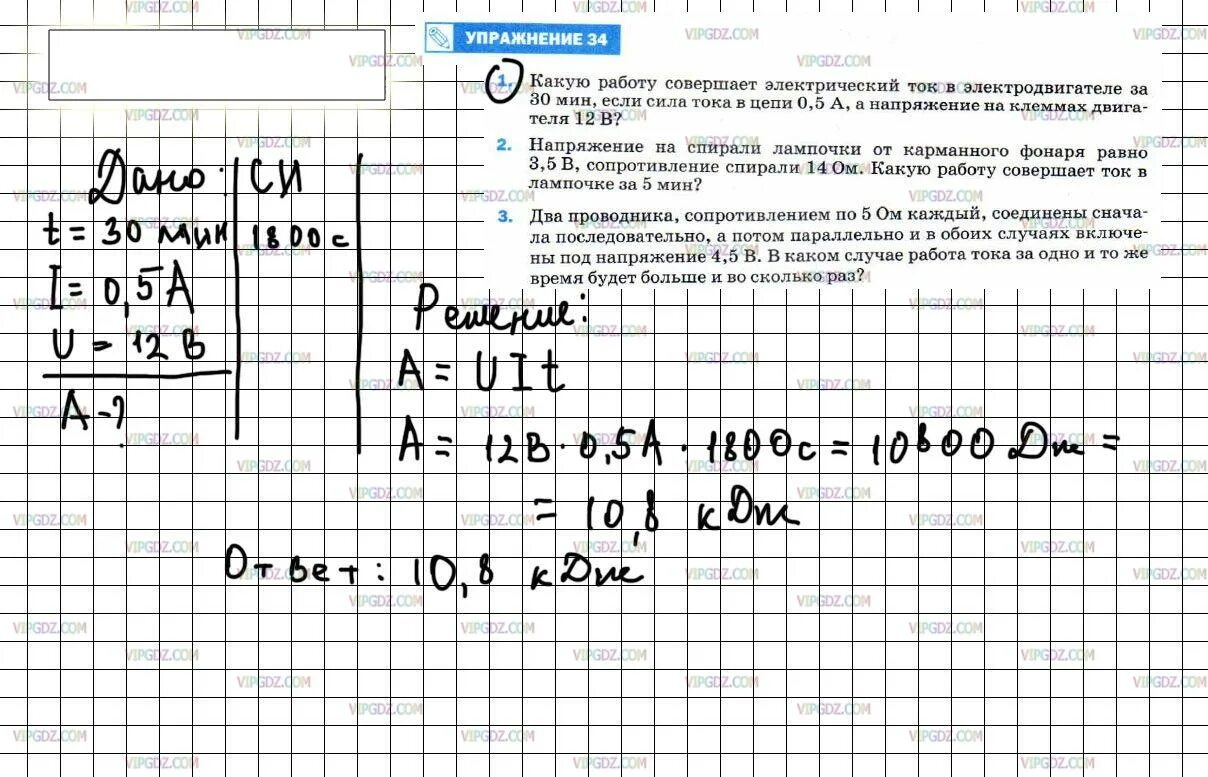 УПРАЖНЕНИЕ 34
1. Какую работу совершает электрический ток в электродвигателе за
30 мин, если сила тока в цепи 0,5 А, а напряжение на клеммах двига-
теля 12 В?
2. Напряжение на спирали лампочки от карманного фонаря равно
3,5 В, сопротивление спирали 14 Ом. Какую работу совершает ток в
лампочке за 5 мин?
3. Два проводника, сопротивлением по 5 Ом каждый, соединены снача-
ла последовательно, а потом параллельно и в обоих случаях включе-
ны под напряжение 4,5 В. В каком случае работа тока за одно и то же
время будет больше и во сколько раз?
Дано: СИ
t = 30 мин 1800 с
I = 0,5 А
U = 12 В
А - ?
Решение:
A = U I t
A = 12В · 0,5А · 1800с = 10800 Дж =
= 10,8 кДж
Ответ: 10,8 кДж
VIPGDZ.COM